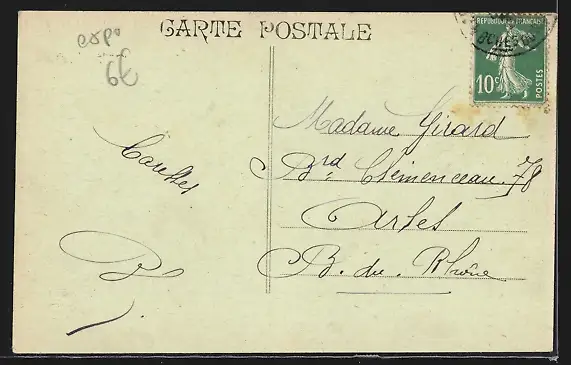 expo
6€
CARTE POSTALE
REPUBLIQUE FRANÇAISE
10c
POSTES
Madame Girard
Brd Clemenceau, 78
Arles
B. du. Rhône